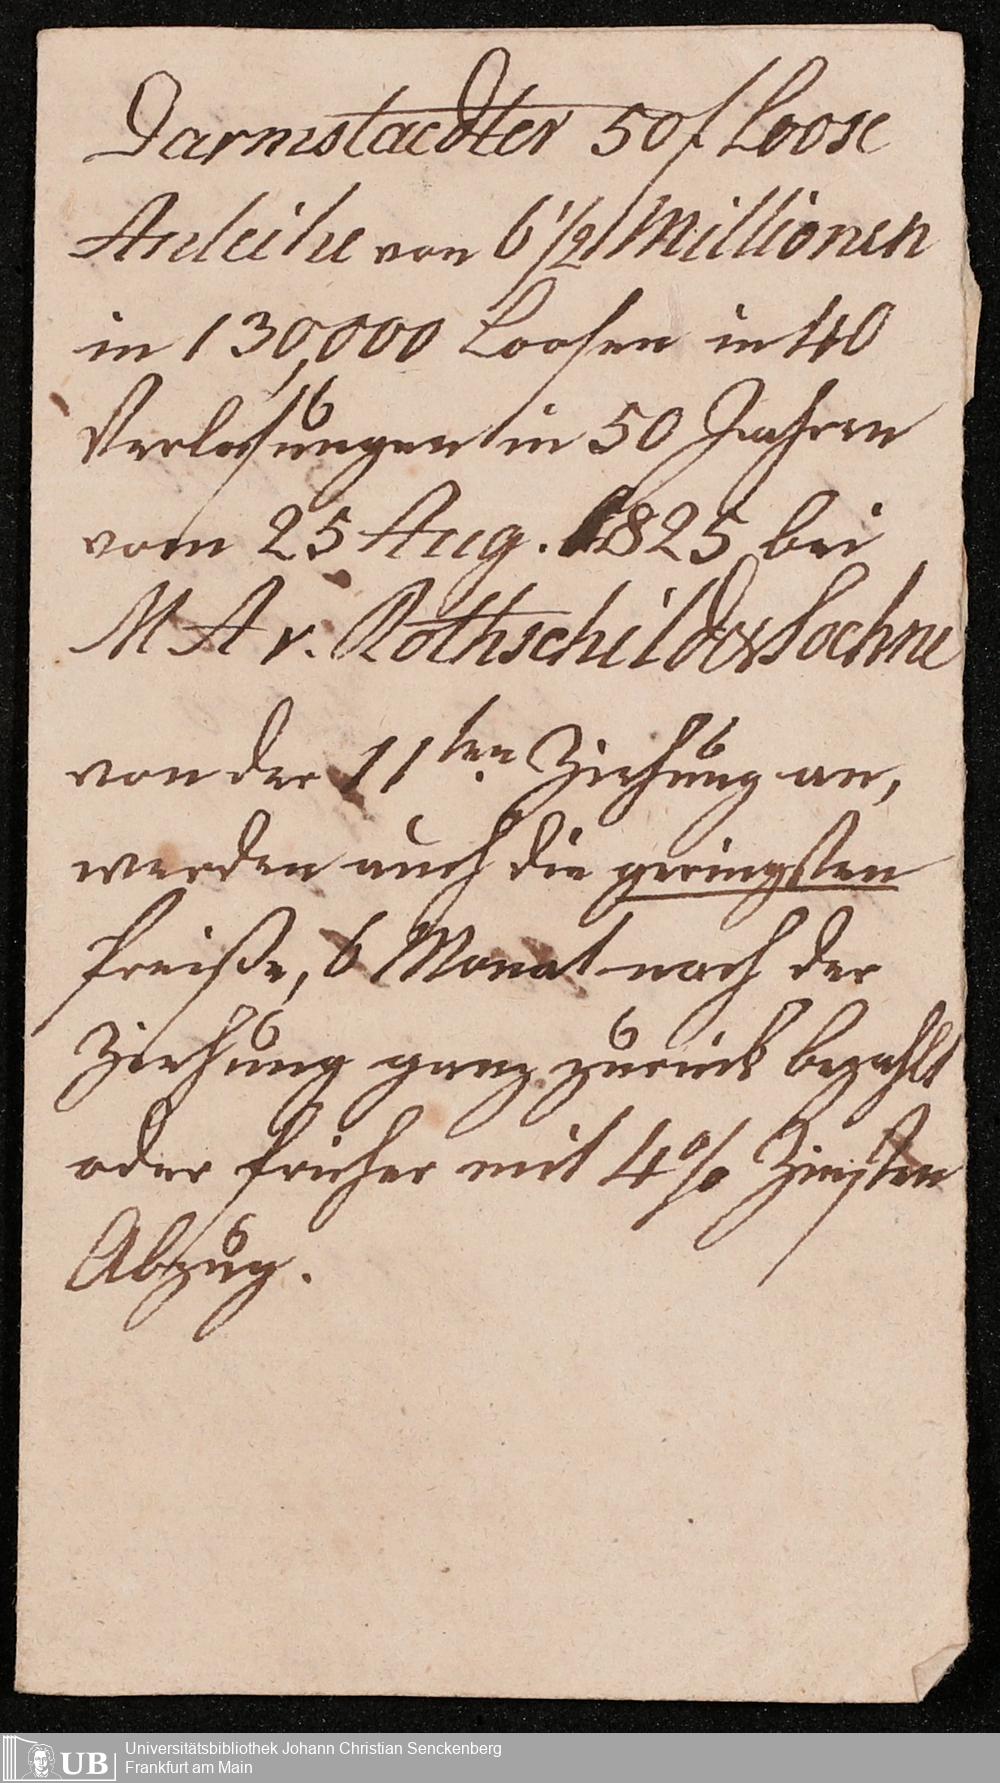 Darmstaedter 50 f Loose
Anleihe von 6 1/2 Millionen
in 130,000 Loosen in 40
Verlosungen in 50 Jahren
vom 25 Aug. 1825 bei
M A v. Rothschild & Soehne
von der 11ten Ziehung an,
werden auch die geringsten
Preiße, 6 Monat nach der
Ziehung ganz zurück bezahlt
oder früher mit 4% Zinsten
Abzug.
UB
Universitätsbibliothek Johann Christian Senckenberg
Frankfurt am Main